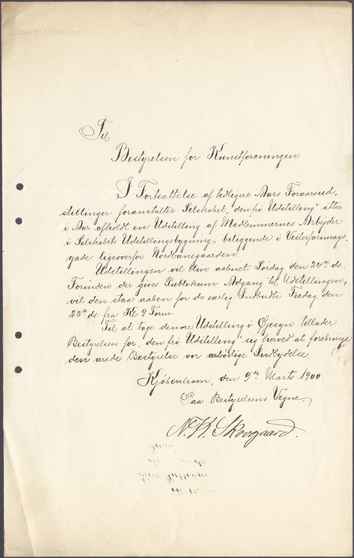 Til
Bestyrelsen for Kunstforeningen
I Fortsættelse af tidligere Aars Foraarsud-
stillinger foranstalter Selskabet "den frie Udstilling" atter
i Aar afholdt en Udstilling af Medlemmernes Arbejder
i Selskabets Udstillingsbygning, beliggende i
gade ligeoverfor Nordbanegaarden.
Udstillingen vil blive aabnet Lørdag den 24de ds.
Foruden der gives Publikum Adgang til Udstillingen,
vil den staa aaben for de særlig Indbudte Fredag den
23de ds fra Kl. 9 Form.
Til at tage denne Udstilling i Øjesyn tillader
Bestyrelsen for "den frie Udstilling" sig herved at
den ærede Bestyrelse vor ærbødige Indbydelse.
Kjøbenhavn, den 9de Marts 1900
Paa Bestyrelsens Vegne,
N. K. Skovgaard.